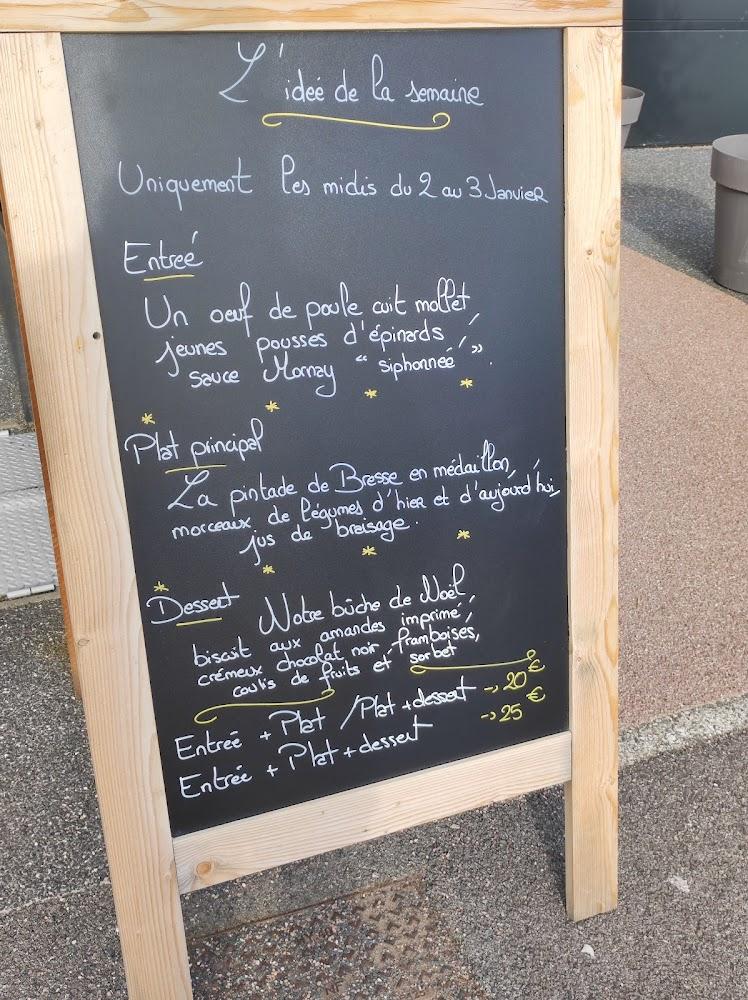 L'idée de la semaine
Uniquement les midis du 2 au 3 Janvier
Entrée
Un oeuf de poule cuit mollet,
jeunes pousses d'épinards,
sauce Mornay "siphonnée".
Plat principal
La pintade de Bresse en médaillon,
morceaux de légumes d'hier et d'aujourd'hui,
jus de braisage.
Dessert Notre bûche de Noël,
biscuit aux amandes imprimé,
crémeux chocolat noir, framboises,
coulis de fruits et sorbet
Entrée + Plat / Plat + dessert -> 20€
Entrée + Plat + dessert -> 25€